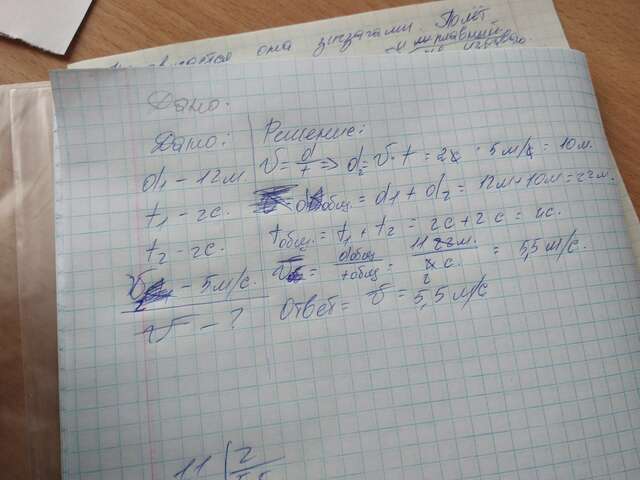 она зигзагами. Полёт
Дано:
Дано:
d₁ - 12 м
t₁ - 2с.
t₂ - 2с.
- 5 м/с.
v - ?
Решение:
v = d/t => d₂ = v · t = 2с · 5 м/с = 10 м.
dобщ = d₁ + d₂ = 12м + 10м = 22м.
tобщ. = t₁ + t₂ = 2с + 2с = 4с.
v = dобщ/tобщ = 11 22 м./4 с. 2 = 5,5 м/с.
Ответ = v = 5,5 м/с
11 2